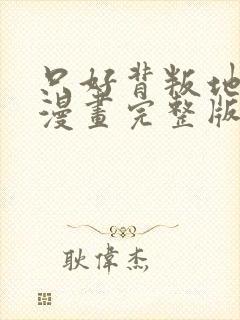 只好背叛地
漫畫完整版
耿偉杰